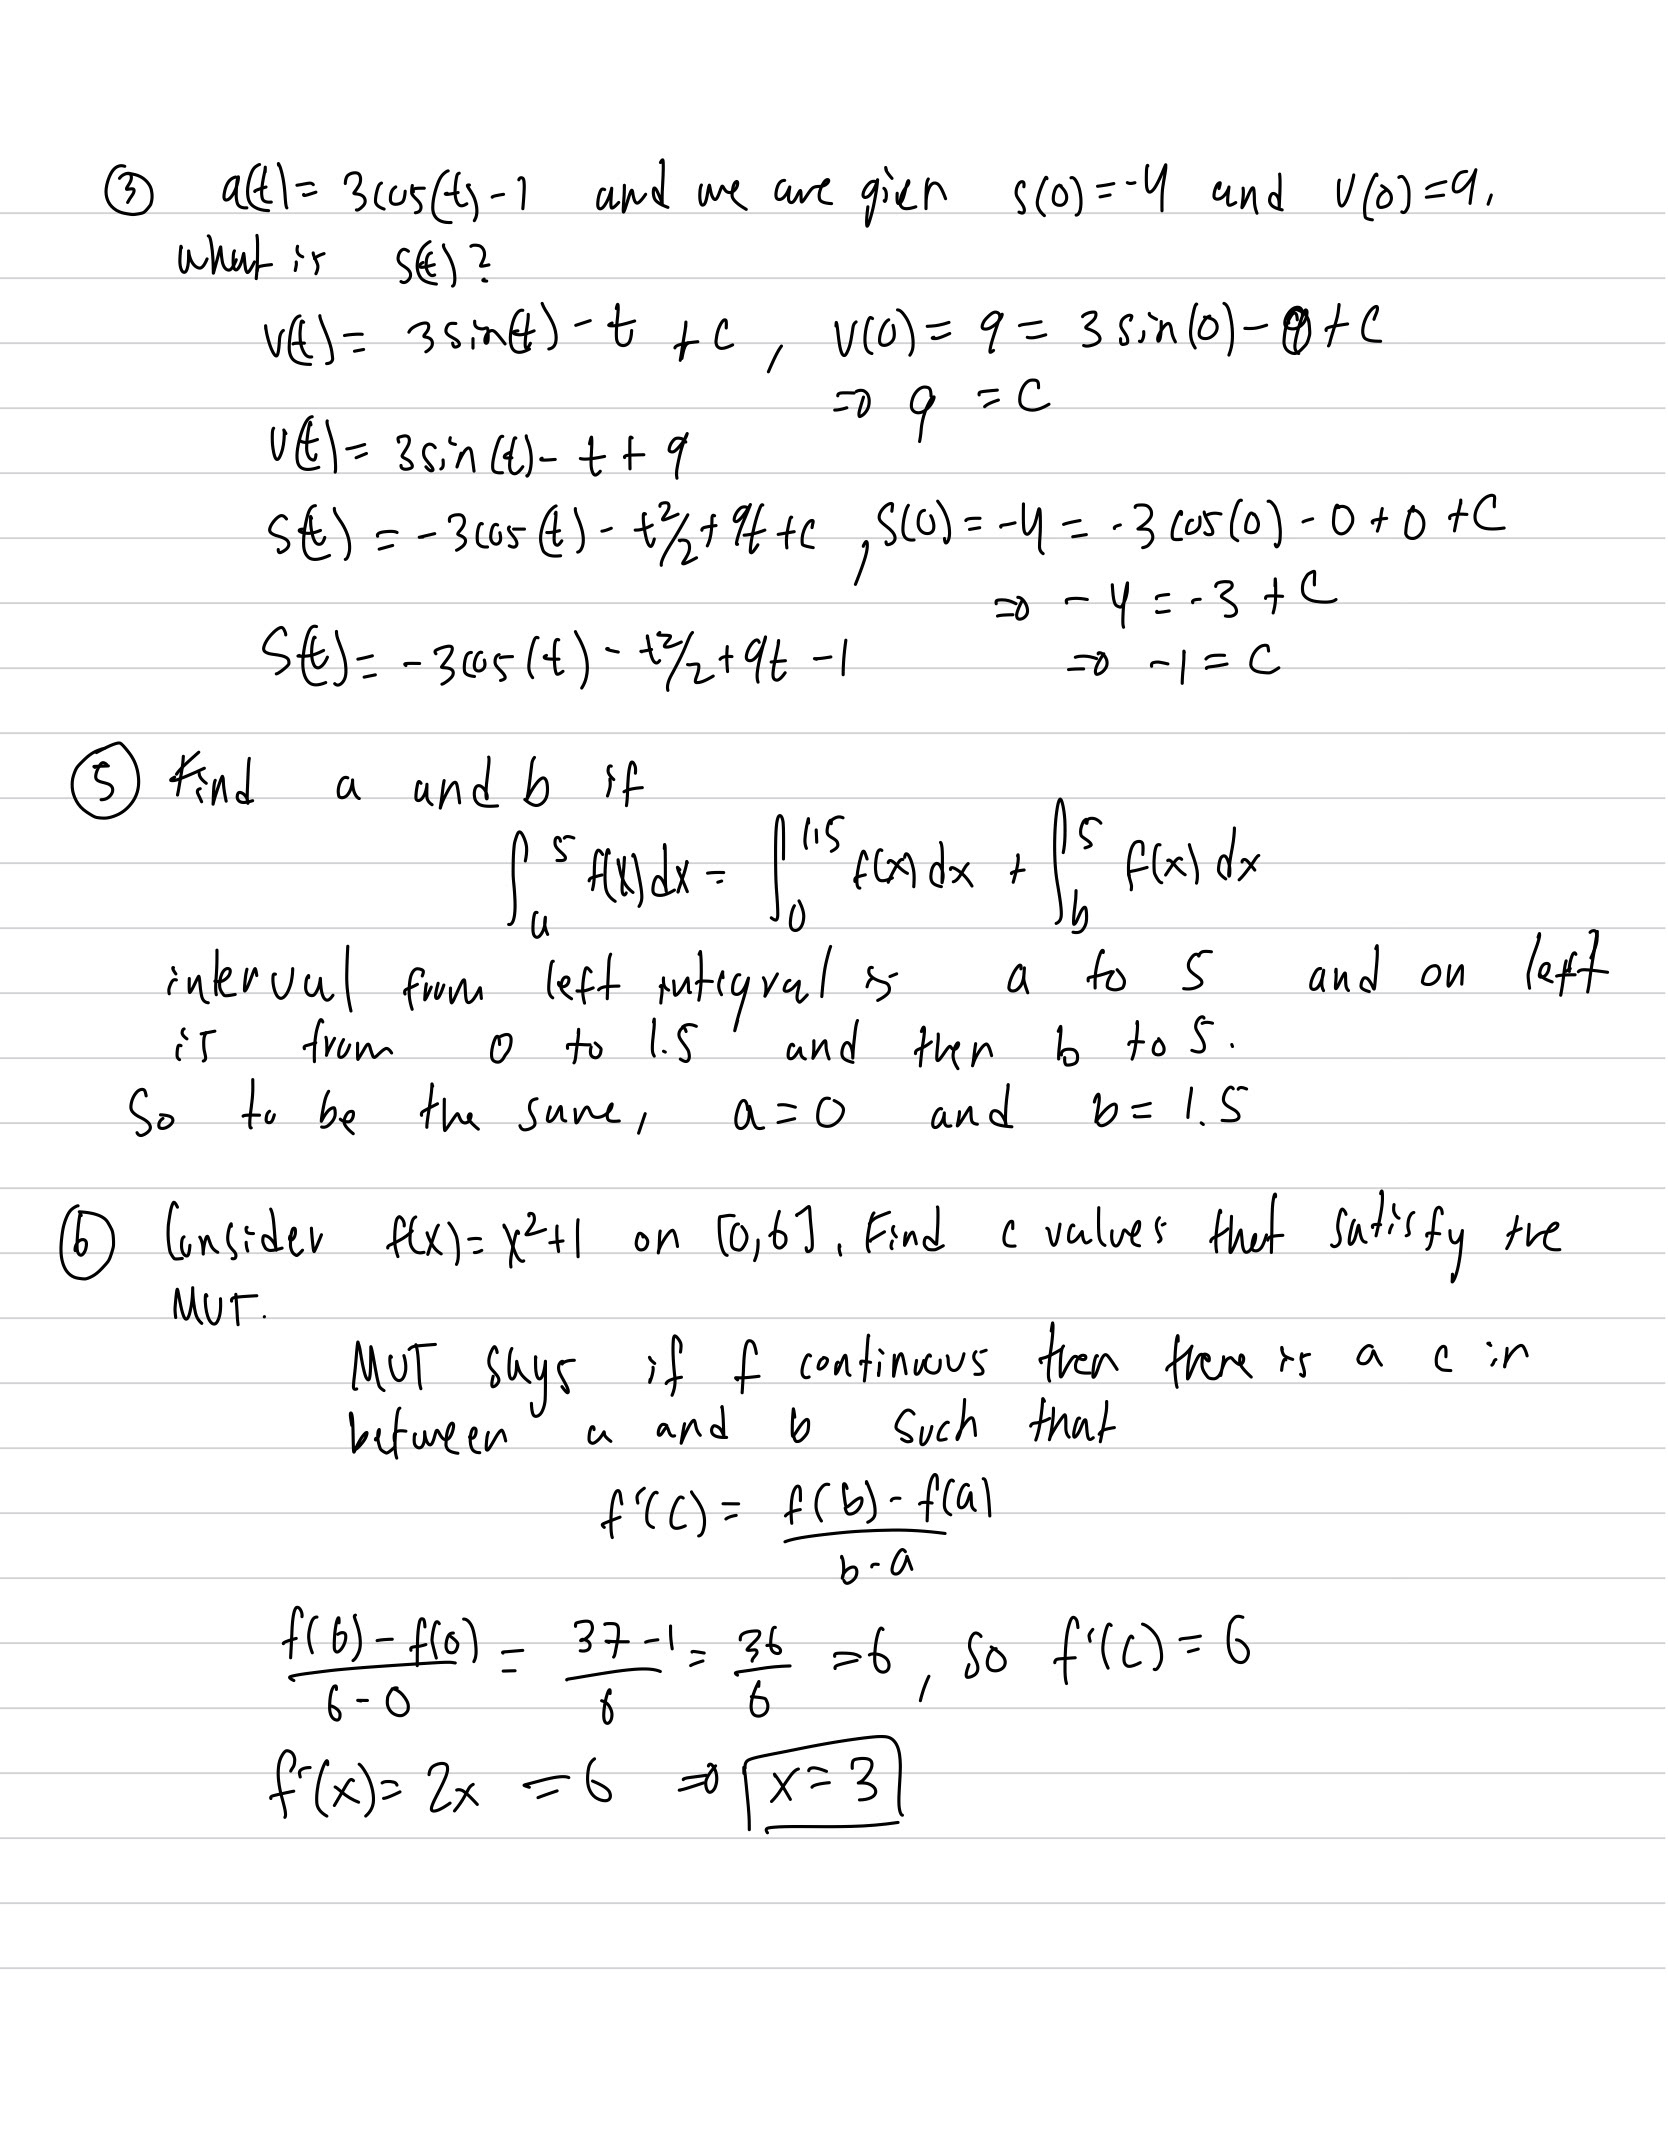 ③ a(t) = 3cos(t) - 1 and we are given s(0) = -4 and v(0) = 9.
what is s(t)?
v(t) = 3sin(t) - t + c , v(0) = 9 = 3 sin(0) - 0 + C
⇒ 9 = C
v(t) = 3sin(t) - t + 9
s(t) = -3cos(t) - t²/2 + 9t + c , s(0) = -4 = -3 cos(0) - 0 + 0 + C
⇒ -4 = -3 + C
s(t) = -3cos(t) - t²/2 + 9t - 1 ⇒ -1 = C
⑤ Find a and b if
∫_a^5 f(x)dx = ∫_0^1.5 f(x)dx + ∫_b^5 f(x)dx
interval from left integral is a to 5 and on left
is from 0 to 1.5 and then b to 5.
So to be the same, a=0 and b=1.5
⑥ Consider f(x) = x²+1 on [0,6]. Find c values that satisfy the
MVT.
MVT says if f continuous then there is a c in
between a and b such that
f'(c) = (f(b) - f(a))/(b-a)
(f(6) - f(0))/(6-0) = (37-1)/6 = 36/6 = 6 , so f'(c) = 6
f'(x) = 2x = 6 ⇒ x = 3